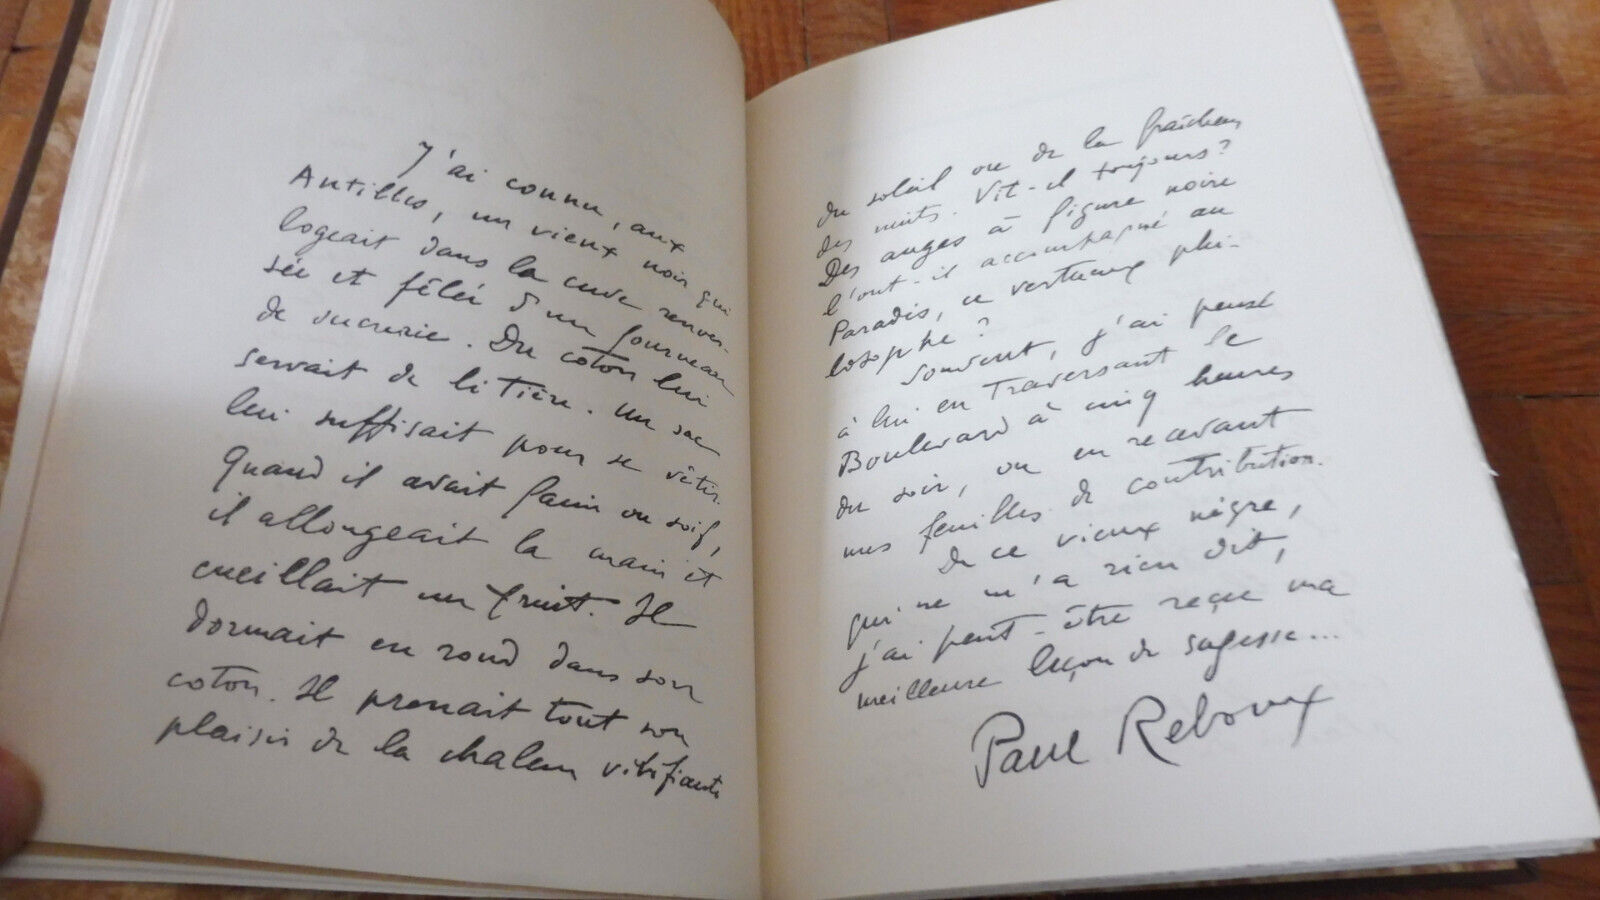 J'ai connu, aux
Antilles, un vieux noir qui
logeait dans la cuve renver-
sée et fêlée d'un fourneau
de sucrerie. Du coton lui
servait de litière. Un sac
lui suffisait pour se vêtir.
Quand il avait faim ou soif,
il allongeait la main et
cueillait un fruit. Il
dormait en rond dans son
coton. Il prenait tout son
plaisir de la chaleur vivifiante
du soleil ou de la fraîcheur
des nuits. Vit-il toujours?
Des anges à figure noire
l'ont-il accompagné au
Paradis, ce vertueux phi-
losophe?
Souvent, j'ai pensé
à lui en traversant le
Boulevard à cinq heures
du soir, ou en recevant
mes feuilles de contribution.
De ce vieux nègre,
qui ne m'a rien dit,
j'ai peut-être reçu ma
meilleure leçon de sagesse...
Paul Reboux